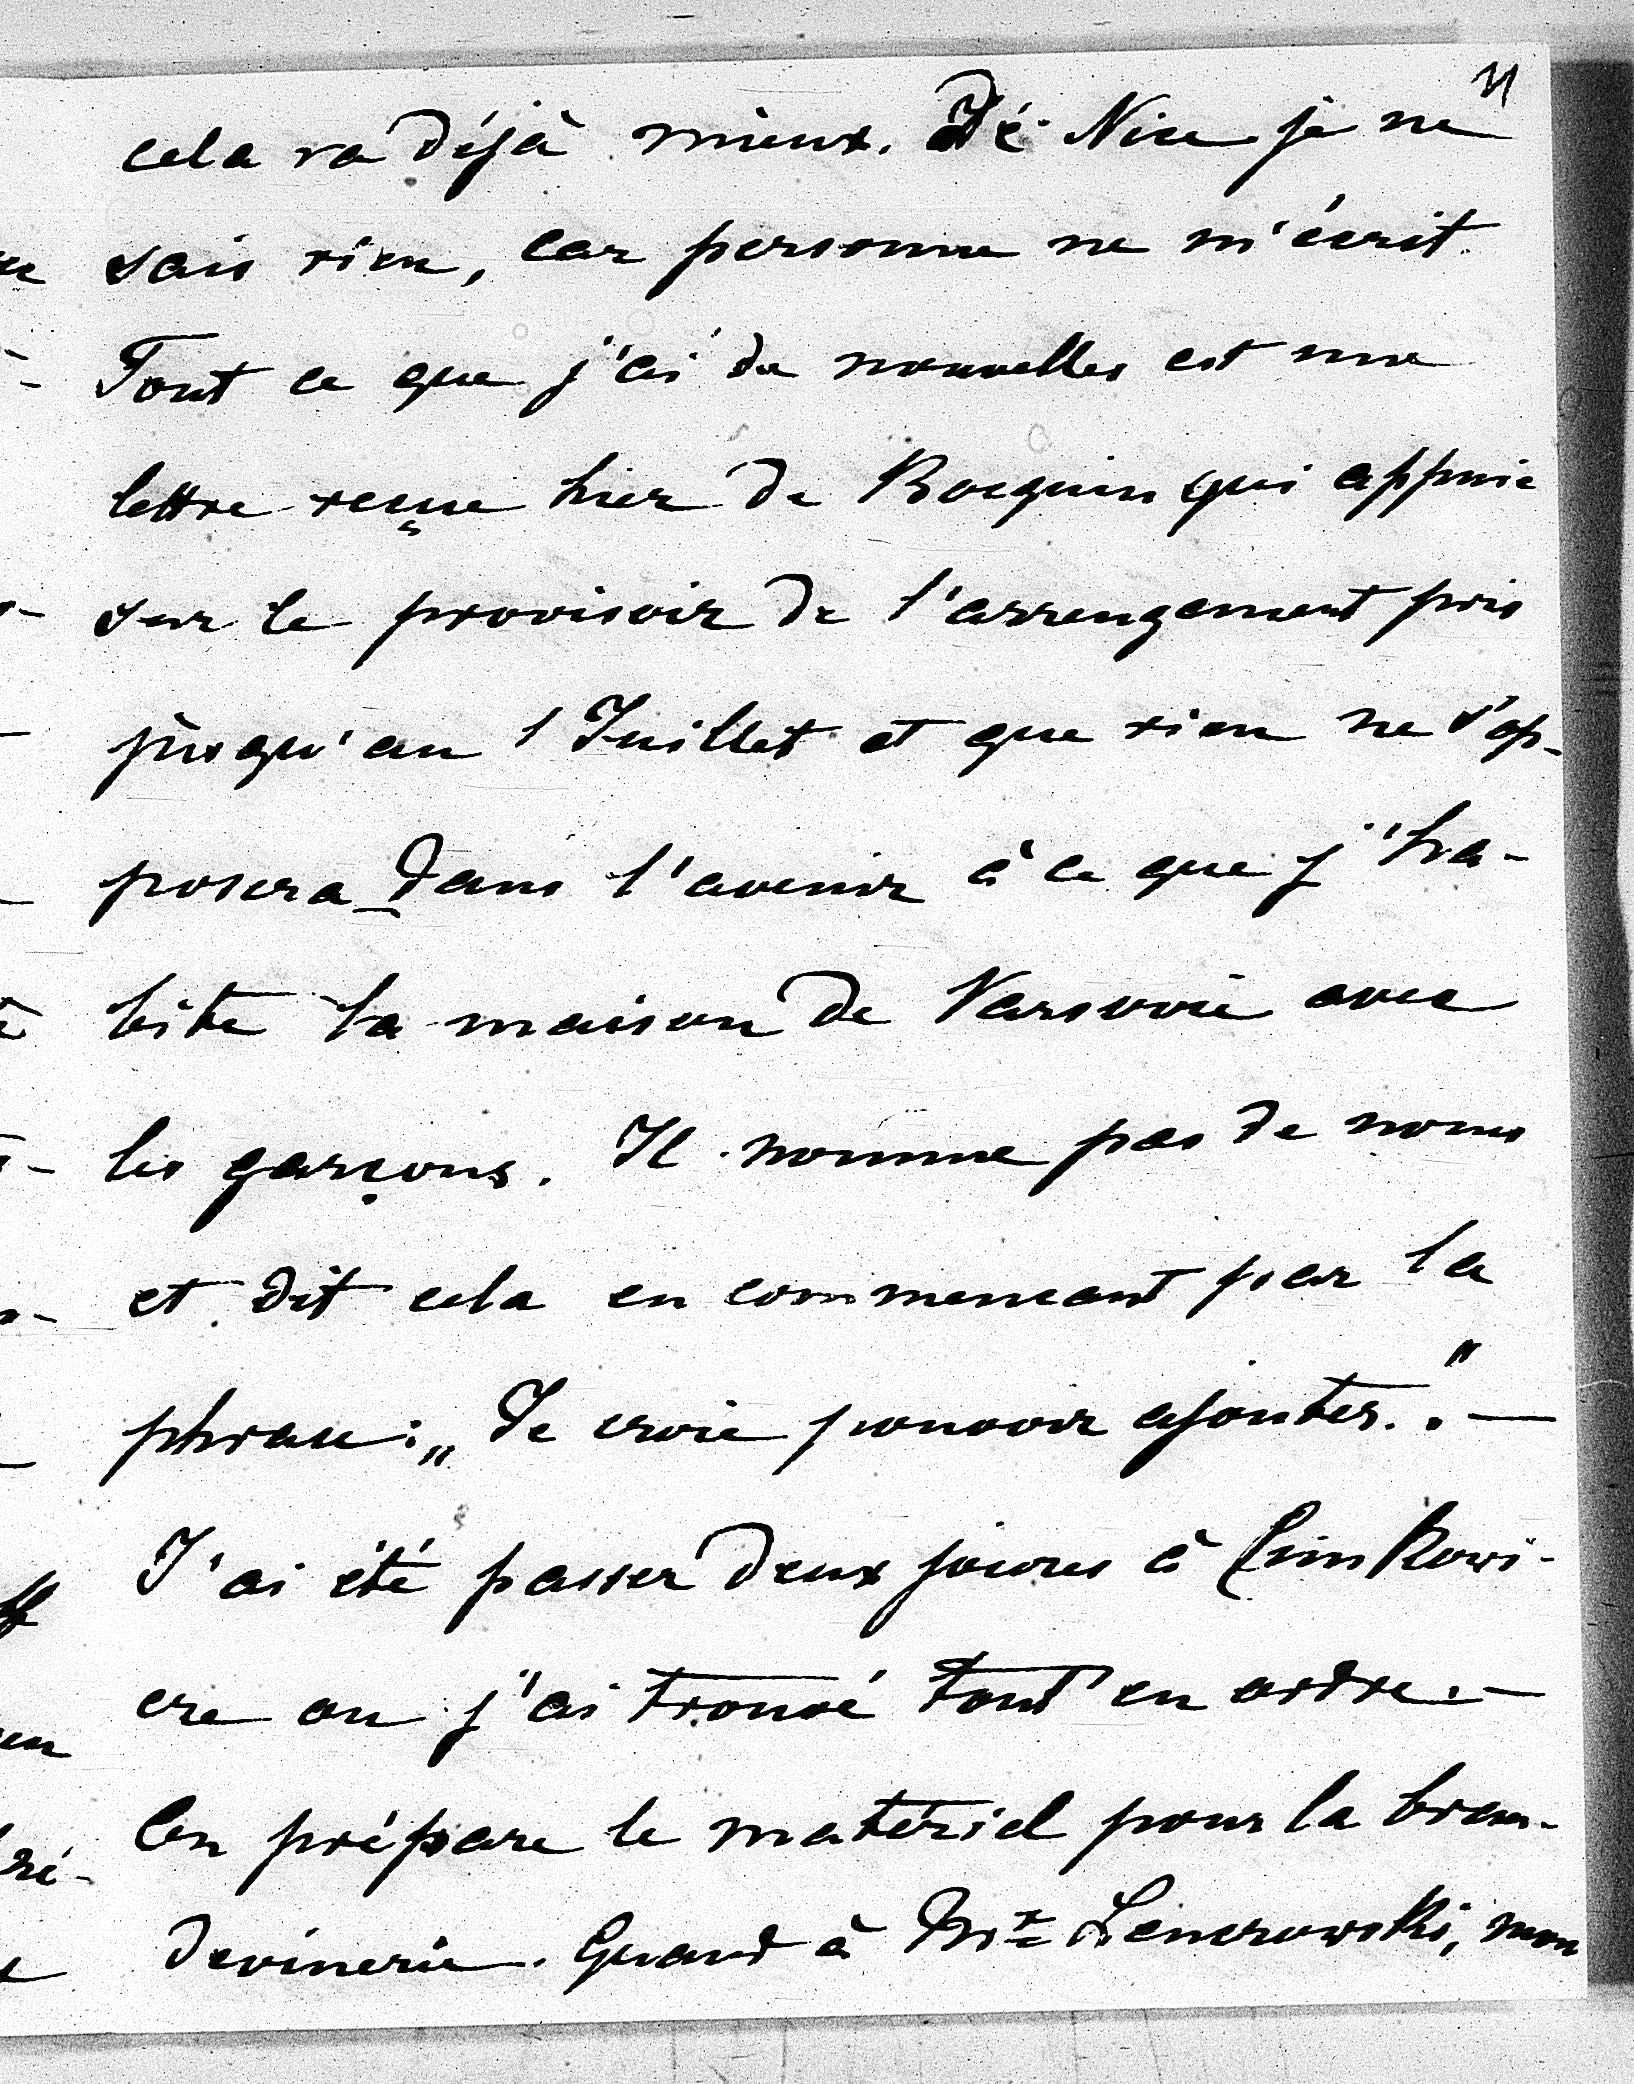 cela va déjà mieux. De Nice je ne
sais rien, car personne ne m'écrit.
Tout ce que j'ai de nouvelles est une
lettre reçue hier de Bocquin qui appuie
sur le provisoir de l'arrengement pris
jusqu'au 1 Juillet et que rien ne s'op-
posera dans l'avenir à ce que j'ha-
bite la maison de Varsovie avec
les garçons. Il nomme pas de noms
et dit cela en commencant par la
phrase: „Je crois pouvoir ajouter.." —
J'ai été passer deux jours à
cre ou j'ai trouvé tout en ordre. —
On prépare le matériel pour la bran-
devinerie. Quand à Mr Lencrowski, mon